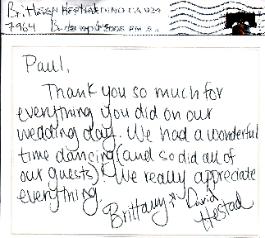 Paul,
Thank you so much for
everything you did on our
wedding day. We had a wonderful
time dancing (and so did all of
our guests)! We really appreciate
everything.
Brittany & David
Hestad